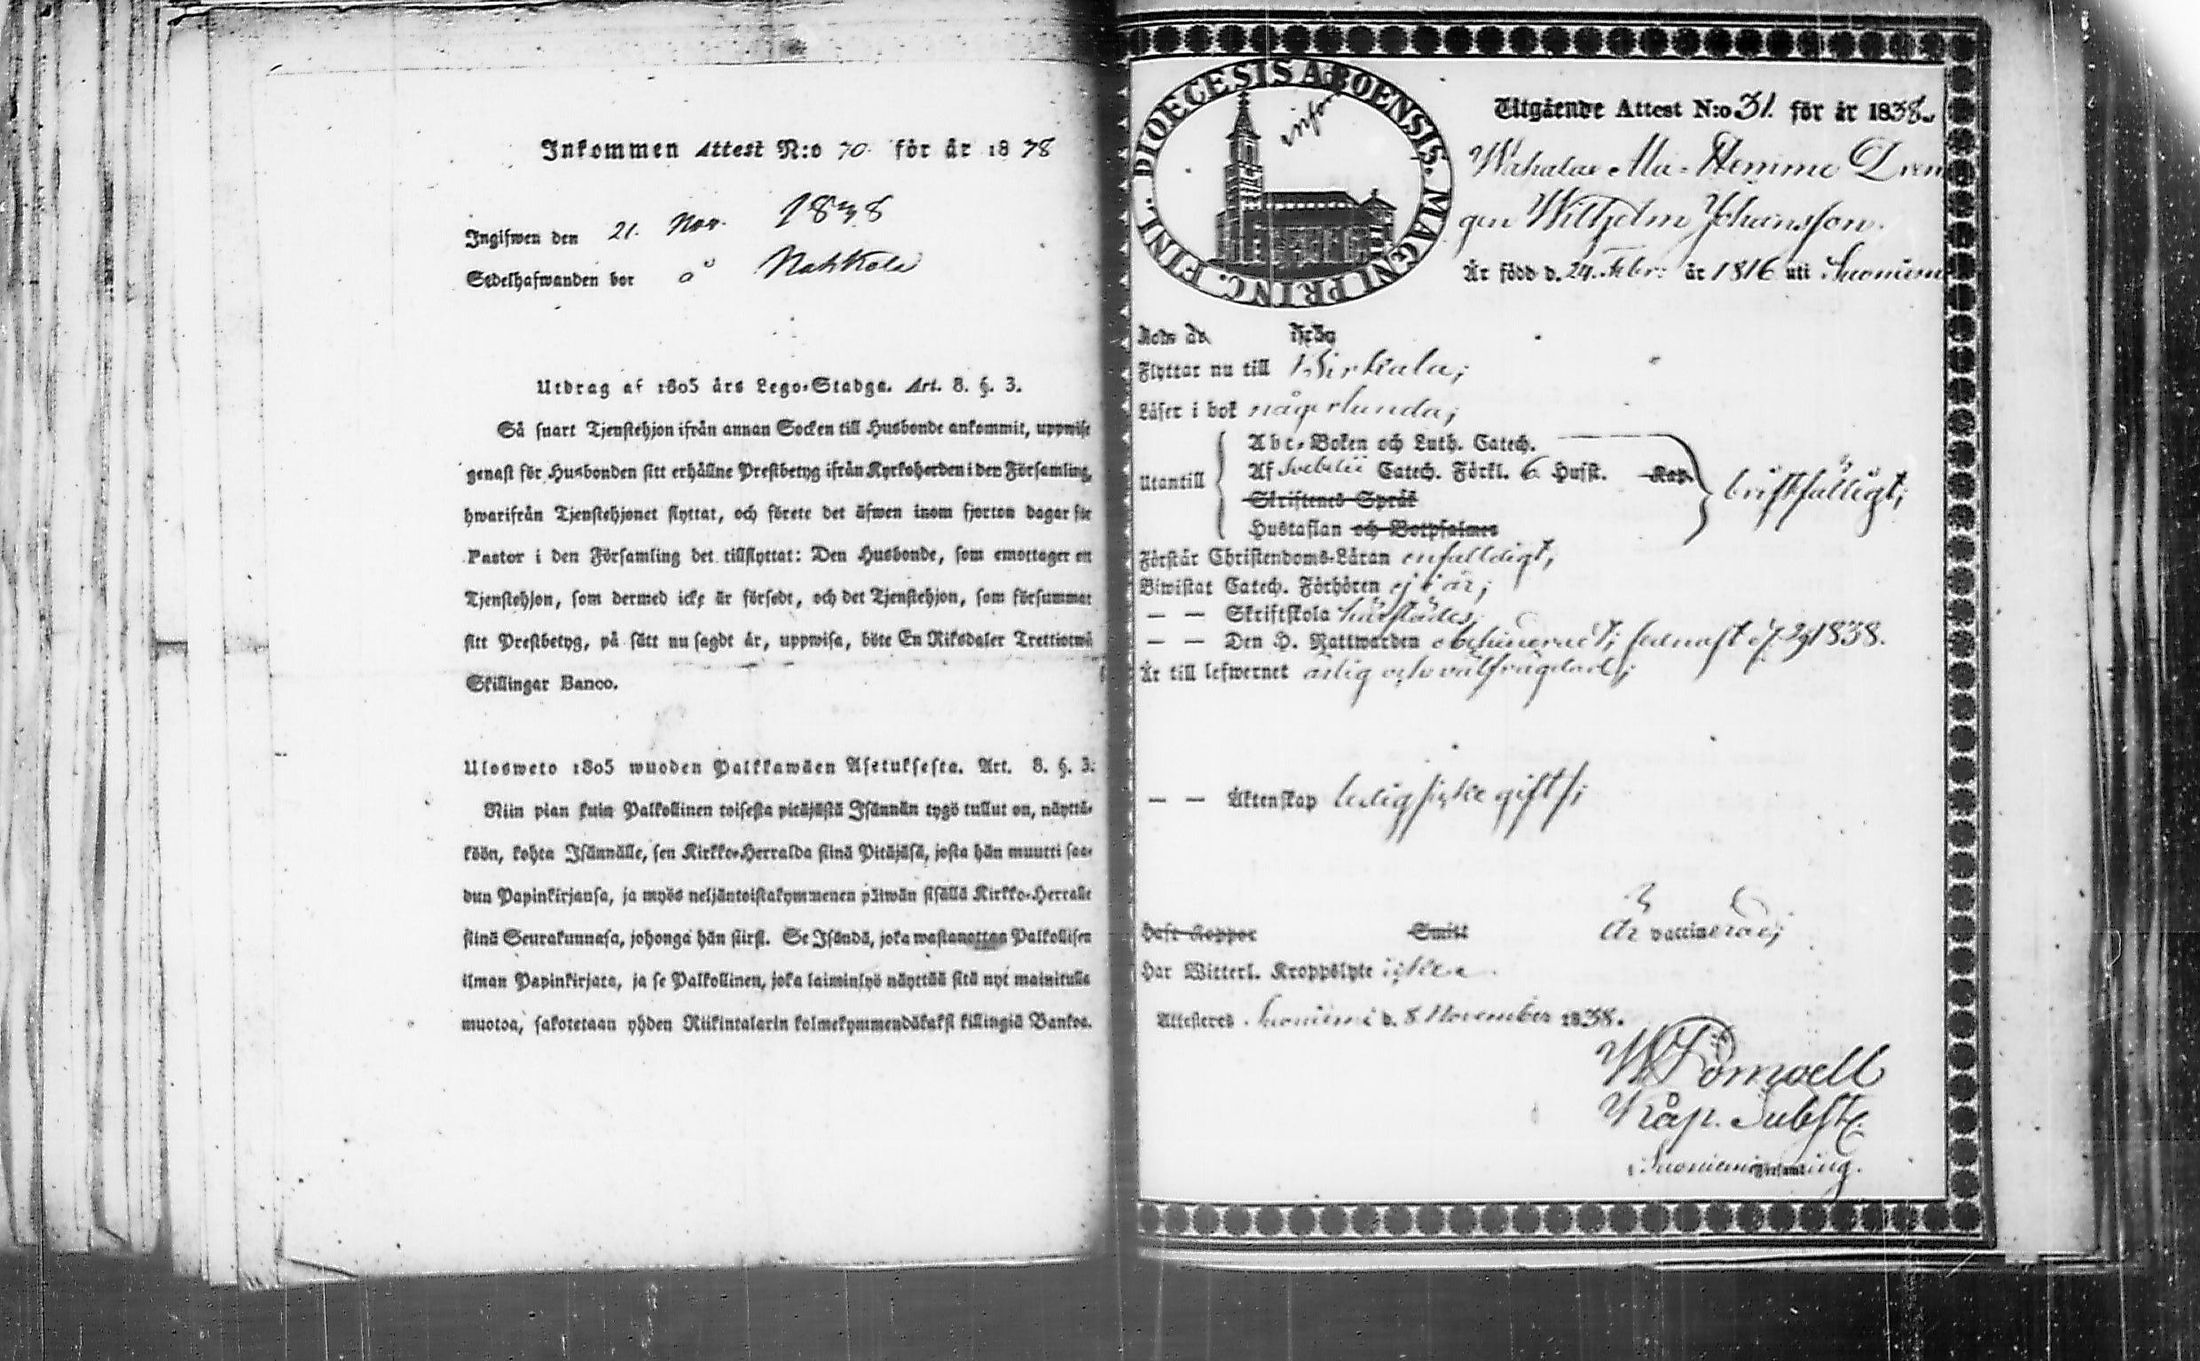 Inkommen Attest N:o 70. för år 1838
Ingifwen den 21. Nov. 1838
Sedelhafwanden bor å Nakkola
Utdrag af 1805 års Lego-Stadga. Art. 8. §. 3.
Så snart Tjenstehjon ifrån annan Socken till Husbonde ankommit, uppwise
genast för Husbonden sitt erhållne Prestbetyg ifrån Kyrkoherden i den Församling,
hwarifrån Tjenstehjonet flyttat, och förete det äfwen inom fjorton dagar för
Pastor i den Församling det tillflyttat: Den Husbonde, som emottager ett
Tjenstehjon, som dermed icke är försedt, och det Tjenstehjon, som försummar
sitt Prestbetyg, på sätt nu sagdt är, uppwisa, böte En Riksdaler Trettiotwå
Skillingar Banco.
Ulosweto 1805 wuoden Palkkawäen Asetuksesta. Art. 8. §. 3.
Niin pian kuin Palkollinen toisesta pitäjästä Isännän tygö tullut on, näyttä-
köön, kohta Isännälle, sen Kirkko-Herralda siinä Pitäjäsä, josta hän muutti saa-
dun Papinkirjansa, ja myös neljäntoistakymmenen päiwän sisällä Kirkko-Herralle
siinä Seurakunnasa, johonga hän siirsi. Se Isändä, joka wastanottaa Palkollisen
ilman Papinkirjata, ja se Palkollinen, joka laiminlyö näyttää sitä nyt mainitulla
muotoa, sakotetaan yhden Riikintalarin kolmekymmendäkaksi killingiä Bankoa.
DIOECESIS ABOENSIS. MAGNI PRINC. FINL.
Utgående Attest N:o 31. för år 1838.
Dren
gen Wilhelm Johansson.
Är född d. 24. Febr: år 1816 uti Suoniem
Flyttar nu till Birkala;
Läser i bok någorlunda;
Utantill
Abc-Boken och Luth. Catech.
Af Svebelii Catech. Förkl. 6. Hufst. Kap.
Skriftenes Språk
Hustaflan och Botpsalmer
bristfälligt;
Förstår Christendoms-Läran enfaldigt;
Biwistat Catech. Förhören ej i år;
— — Skriftskola härstädes;
— — Den H. Nattwarden obehindrad; sednast 1838.
Är till lefwernet ärlig och välfrägdad;
— — Äktenskap ledig icke gift;
Haft Koppor Smitt Är vaccinerad;
Har Witterl. Kroppslyte icke.
Attesteras Suoniemi d. 8 November 1838.
Kap. Subst.
Suoniemi Församling.